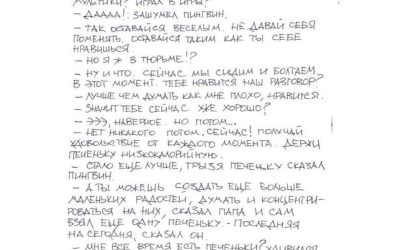 МУЛЬТИКИ? ИГРАЛ В ИГРЫ?
– ДАААА!. ЗАШУМЕЛ ПИНГВИН.
– ТАК ОСТАВАЙСЯ ВЕСЕЛЫМ. НЕ ДАВАЙ СЕБЯ
ПОМЕНЯТЬ. ОСТАВАЙСЯ ТАКИМ КАК ТЫ СЕБЕ
НРАВИШЬСЯ.
– НО Я Ж В ТЮРЬМЕ!?
– НУ И ЧТО. СЕЙЧАС МЫ СИДИМ И БОЛТАЕМ
В ЭТОТ МОМЕНТ. ТЕБЕ НРАВИТСЯ НАШ РАЗГОВОР?
– ЛУЧШЕ ЧЕМ ДУМАТЬ КАК МНЕ ПЛОХО, НРАВИТСЯ.
– ЗНАЧИТ ТЕБЕ СЕЙЧАС УЖЕ ХОРОШО?
– ЭЭЭ, НАВЕРНОЕ. НО ПОТОМ...
– НЕТ НИКАКОГО ПОТОМ. СЕЙЧАС! ПОЛУЧАЙ
УДОВОЛЬСТВИЕ ОТ КАЖДОГО МОМЕНТА. ДЕРЖИ
ПЕЧЕНЬКУ НИЗКОКАЛОРИЙНУЮ.
– СТАЛО ЕЩЕ ЛУЧШЕ, ГРЫЗЯ ПЕЧЕНЬКУ СКАЗАЛ
ПИНГВИН.
– А ТЫ МОЖЕШЬ СОЗДАТЬ ЕЩЕ БОЛЬШЕ
МАЛЕНЬКИХ РАДОСТЕЙ, ДУМАТЬ И КОНЦЕНТРИ-
РОВАТЬСЯ НА НИХ, СКАЗАЛ ПАПА И САМ
ВЗЯЛ ЕЩЕ ОДНУ ПЕЧЕНЬКУ. – ПОСЛЕДНЯЯ
НА СЕГОДНЯ, СКАЗАЛ ОН
– МНЕ ВСЕ ВРЕМЯ ЕСТЬ ПЕЧЕНЬКИ? УДИВИЛСЯ